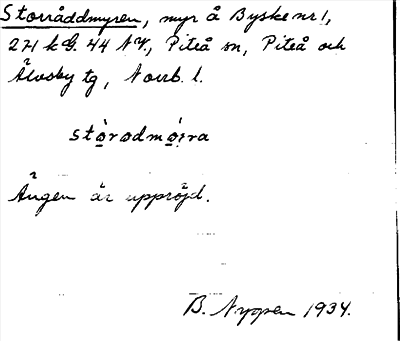 Storråddmyren, myr å Byske nr 1,
271 k G. 44 NV., Piteå sn, Piteå och
Älvsby tg, Norrb. l.
stòrodmỏi̯ra
Ängen är uppröjd.
B. Nyppen 1934.